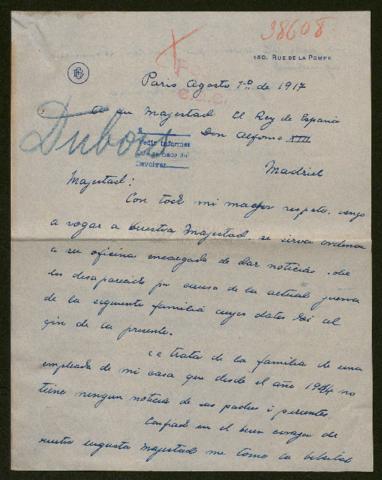 38608
180. RUE DE LA POMPE
Paris Agosto 1º de 1917
A su Majestad El Rey de España
Don Alfonso XIII
Dubors
Pedir informes
Devolver
Madrid
Majestad:
Con todo mi mayor respeto, vengo
a rogar a Vuestra Majestad, se sirva ordenar
a su oficina encargada de dar noticias, de
los desaparecido por causa de la actual guerra
de la siguiente familia cuyos datos doi al
fin de la presente.
Se trata de la familia de una
empleada de mi casa que desde el año 1914 no
tiene ningun noticia de sus padres i parientes
Confiado en el buen corazon de
vuestra augusta majestad me tomo la libertad